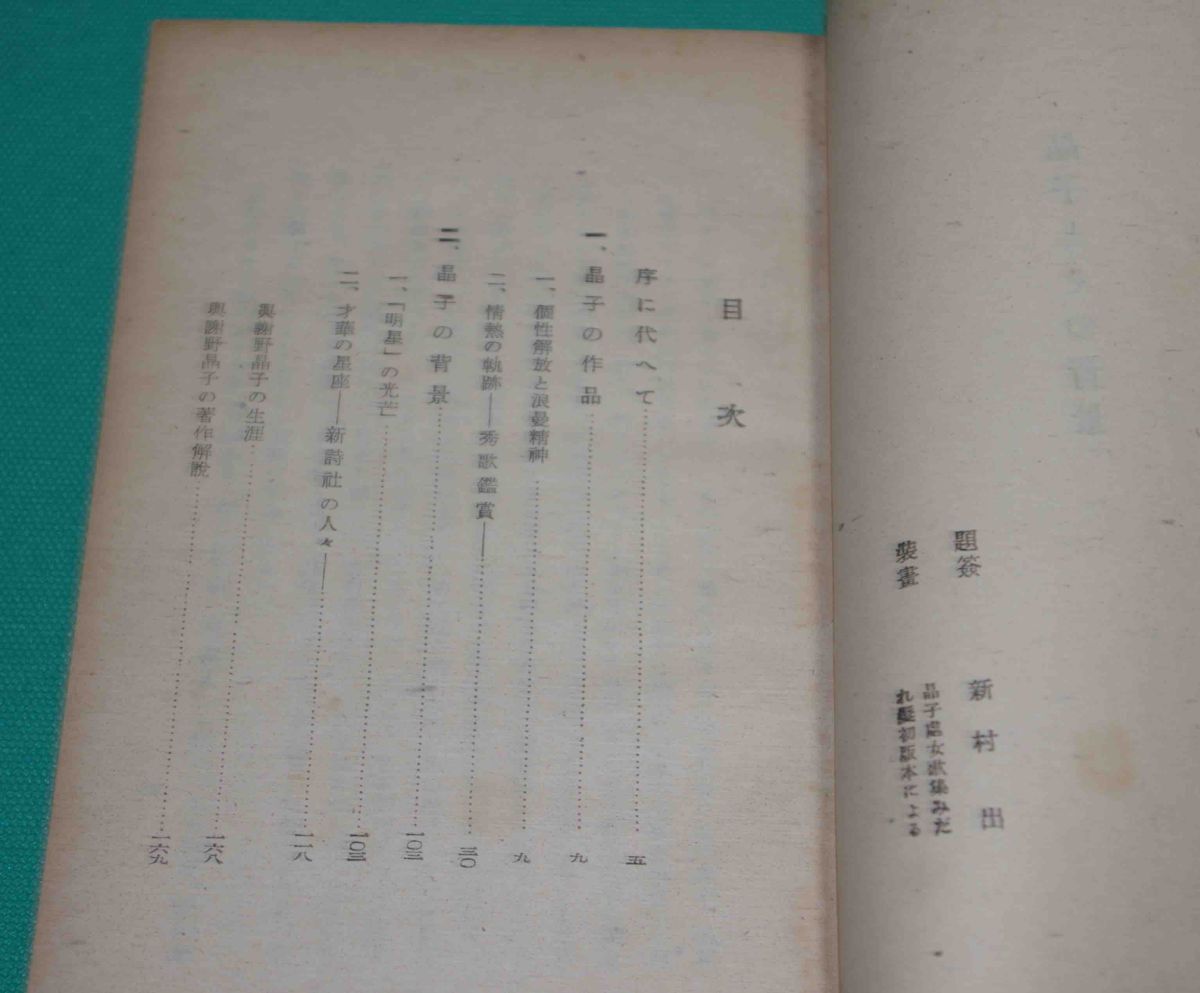 題簽 新村出
裝畫 晶子處女歌集みだ
れ髮初版本による
目次
序に代へて……五
一、晶子の作品……九
一、個性解放と浪曼精神……九
二、情熱の軌跡――秀歌鑑賞――……三〇
二、晶子の背景……一〇三
一、「明星」の光芒……一〇三
二、才華の星座――新詩社の人々――……一一八
與謝野晶子の生涯……一六八
與謝野晶子の著作解說……一六九